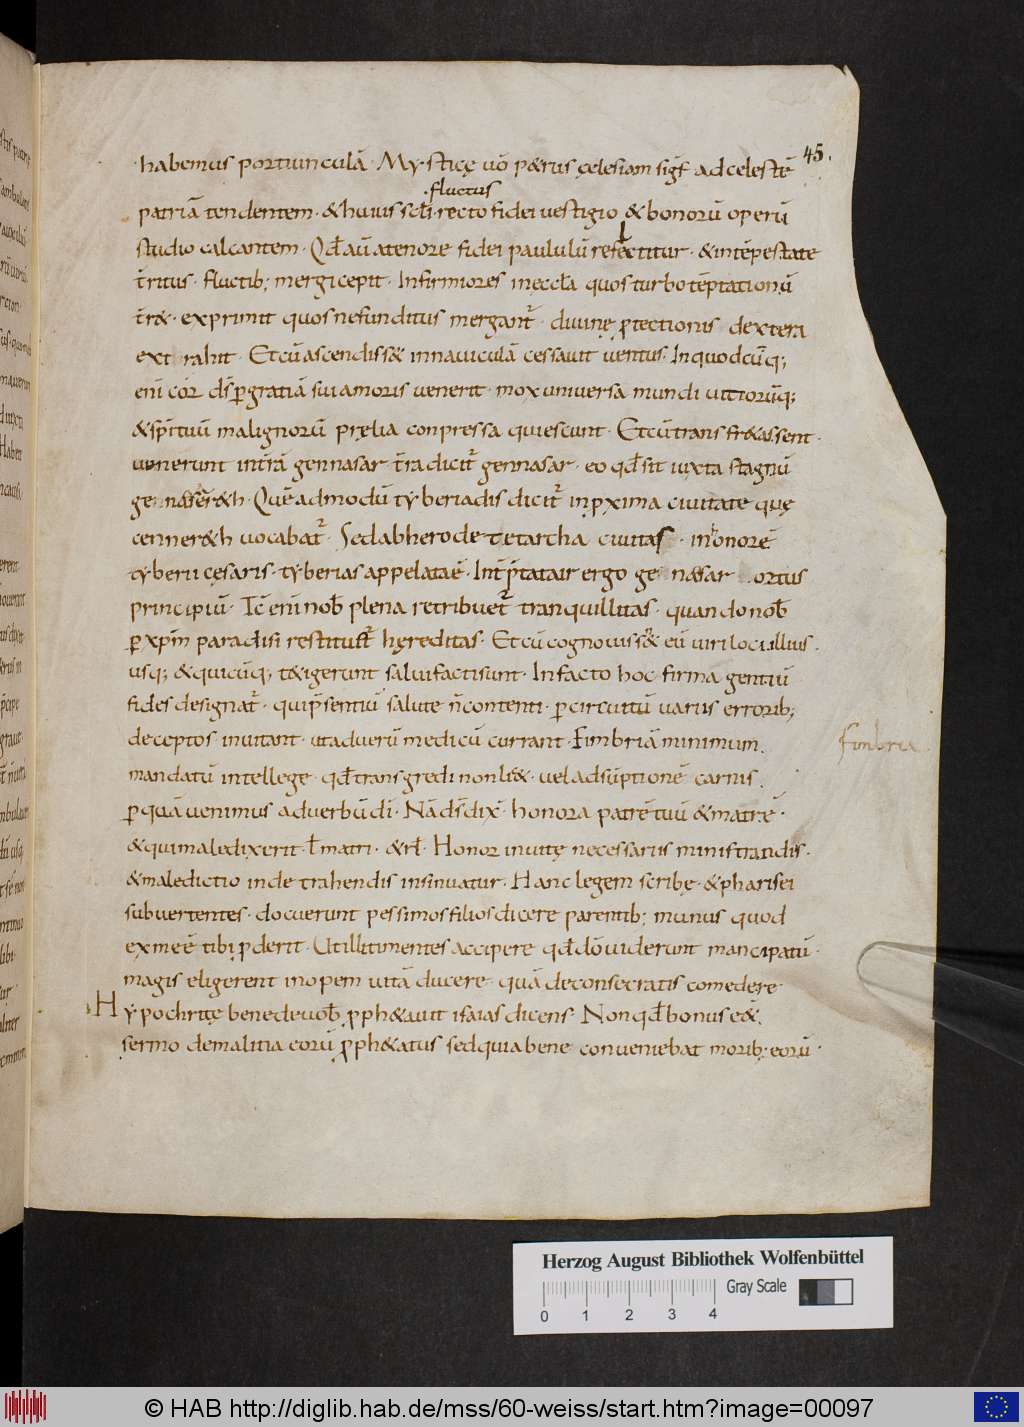 45.
habemus portiunculā· Mysticę uō p&rus ęclesiam sigf̄ ad celestē
·fluctus
patriā tendentem· & huius scłi recto fidei uestigio & bonorū operū
studio calcantem· Qđ aū a tenore fidei paululū reflectitur· & intēpestate
t̄ritus· fluctib; mergi cepit· Infirmiores in ęccła quos turbo tēptationū
t̄r&· exprimit quos ne funditus mergant᷒· diuinę ꝓtectionis dextera
ext rahit· Et cū ascendiss& in nauiculā cessauit uentus· In quodcūq;
enī cor ds̄ ꝑ gratiā sui amoris uenerit· mox uniuersa mundi uitiorūq;
& spirituū malignorū pręlia conpressa quiescunt· Et cū transfr&assent·
uenerunt in t̄rā gennasar· t̄ra dicit᷒ gennasar· eo qđ sit iuxta stagnū
gennasar&h· Quēadmodū tyberiadis dicit᷒ in ꝓxima ciuitate quę
cenner&h uocabat᷒· Sed ab herode t&etarcha ciuitas· in honorē
tyberii cęsaris· tyberias appelata ē· Int̄p̄tatair ergo ge nasar ortus
principiū· Tc̄ enī nob̄ plena retribuet᷒ tranquillitas· quando nob̄
ꝑ xp̄m paradisi restituit᷒ hęreditas· Et cū cognouiss& eū uiri loci illius·
usq; & quicūq; t&igerunt salui facti sunt· In facto hoc firma gentiū
fides designat᷒· qui p̄sentiū salute n̄ contenti· ꝑ circuitū uariis errorib;
deceptos inuitant· ut ad uerū medicū currant· Fimbriā minimum
fimbria
mandatū intellege· qđ transgredi non lic&· uel adsūptionē carnis·
ꝑ quā uenimus ad uerbū dī· Nā ds̄ dix̄· honora patrē tuū & matrē·
& qui maledixerit· ł matri· & rł· Honor in uitę necessariis ministrandis·
& maledictio in detrahendis insinuatur· Hanc legem scribę & pharisei
subuertentes· docuerunt pessimos filios dicere parentib; munus quod
ex me ē tibi ꝓderit· Ut illi timentes accipere qđ dō uiderunt mancipatū·
magis eligerent inopem uitā ducere· quā de consecratis comedere·
Hypochritę bene de uob̄ ꝓph&auit isaias dicens· Non qđ bonus e&
sermo de malitia eorū ꝓph&atus sed quia bene conueniebat morib; eorū·
Herzog August Bibliothek Wolfenbüttel
Gray Scale
0 1 2 3 4
© HAB http://diglib.hab.de/mss/60-weiss/start.htm?image=00097